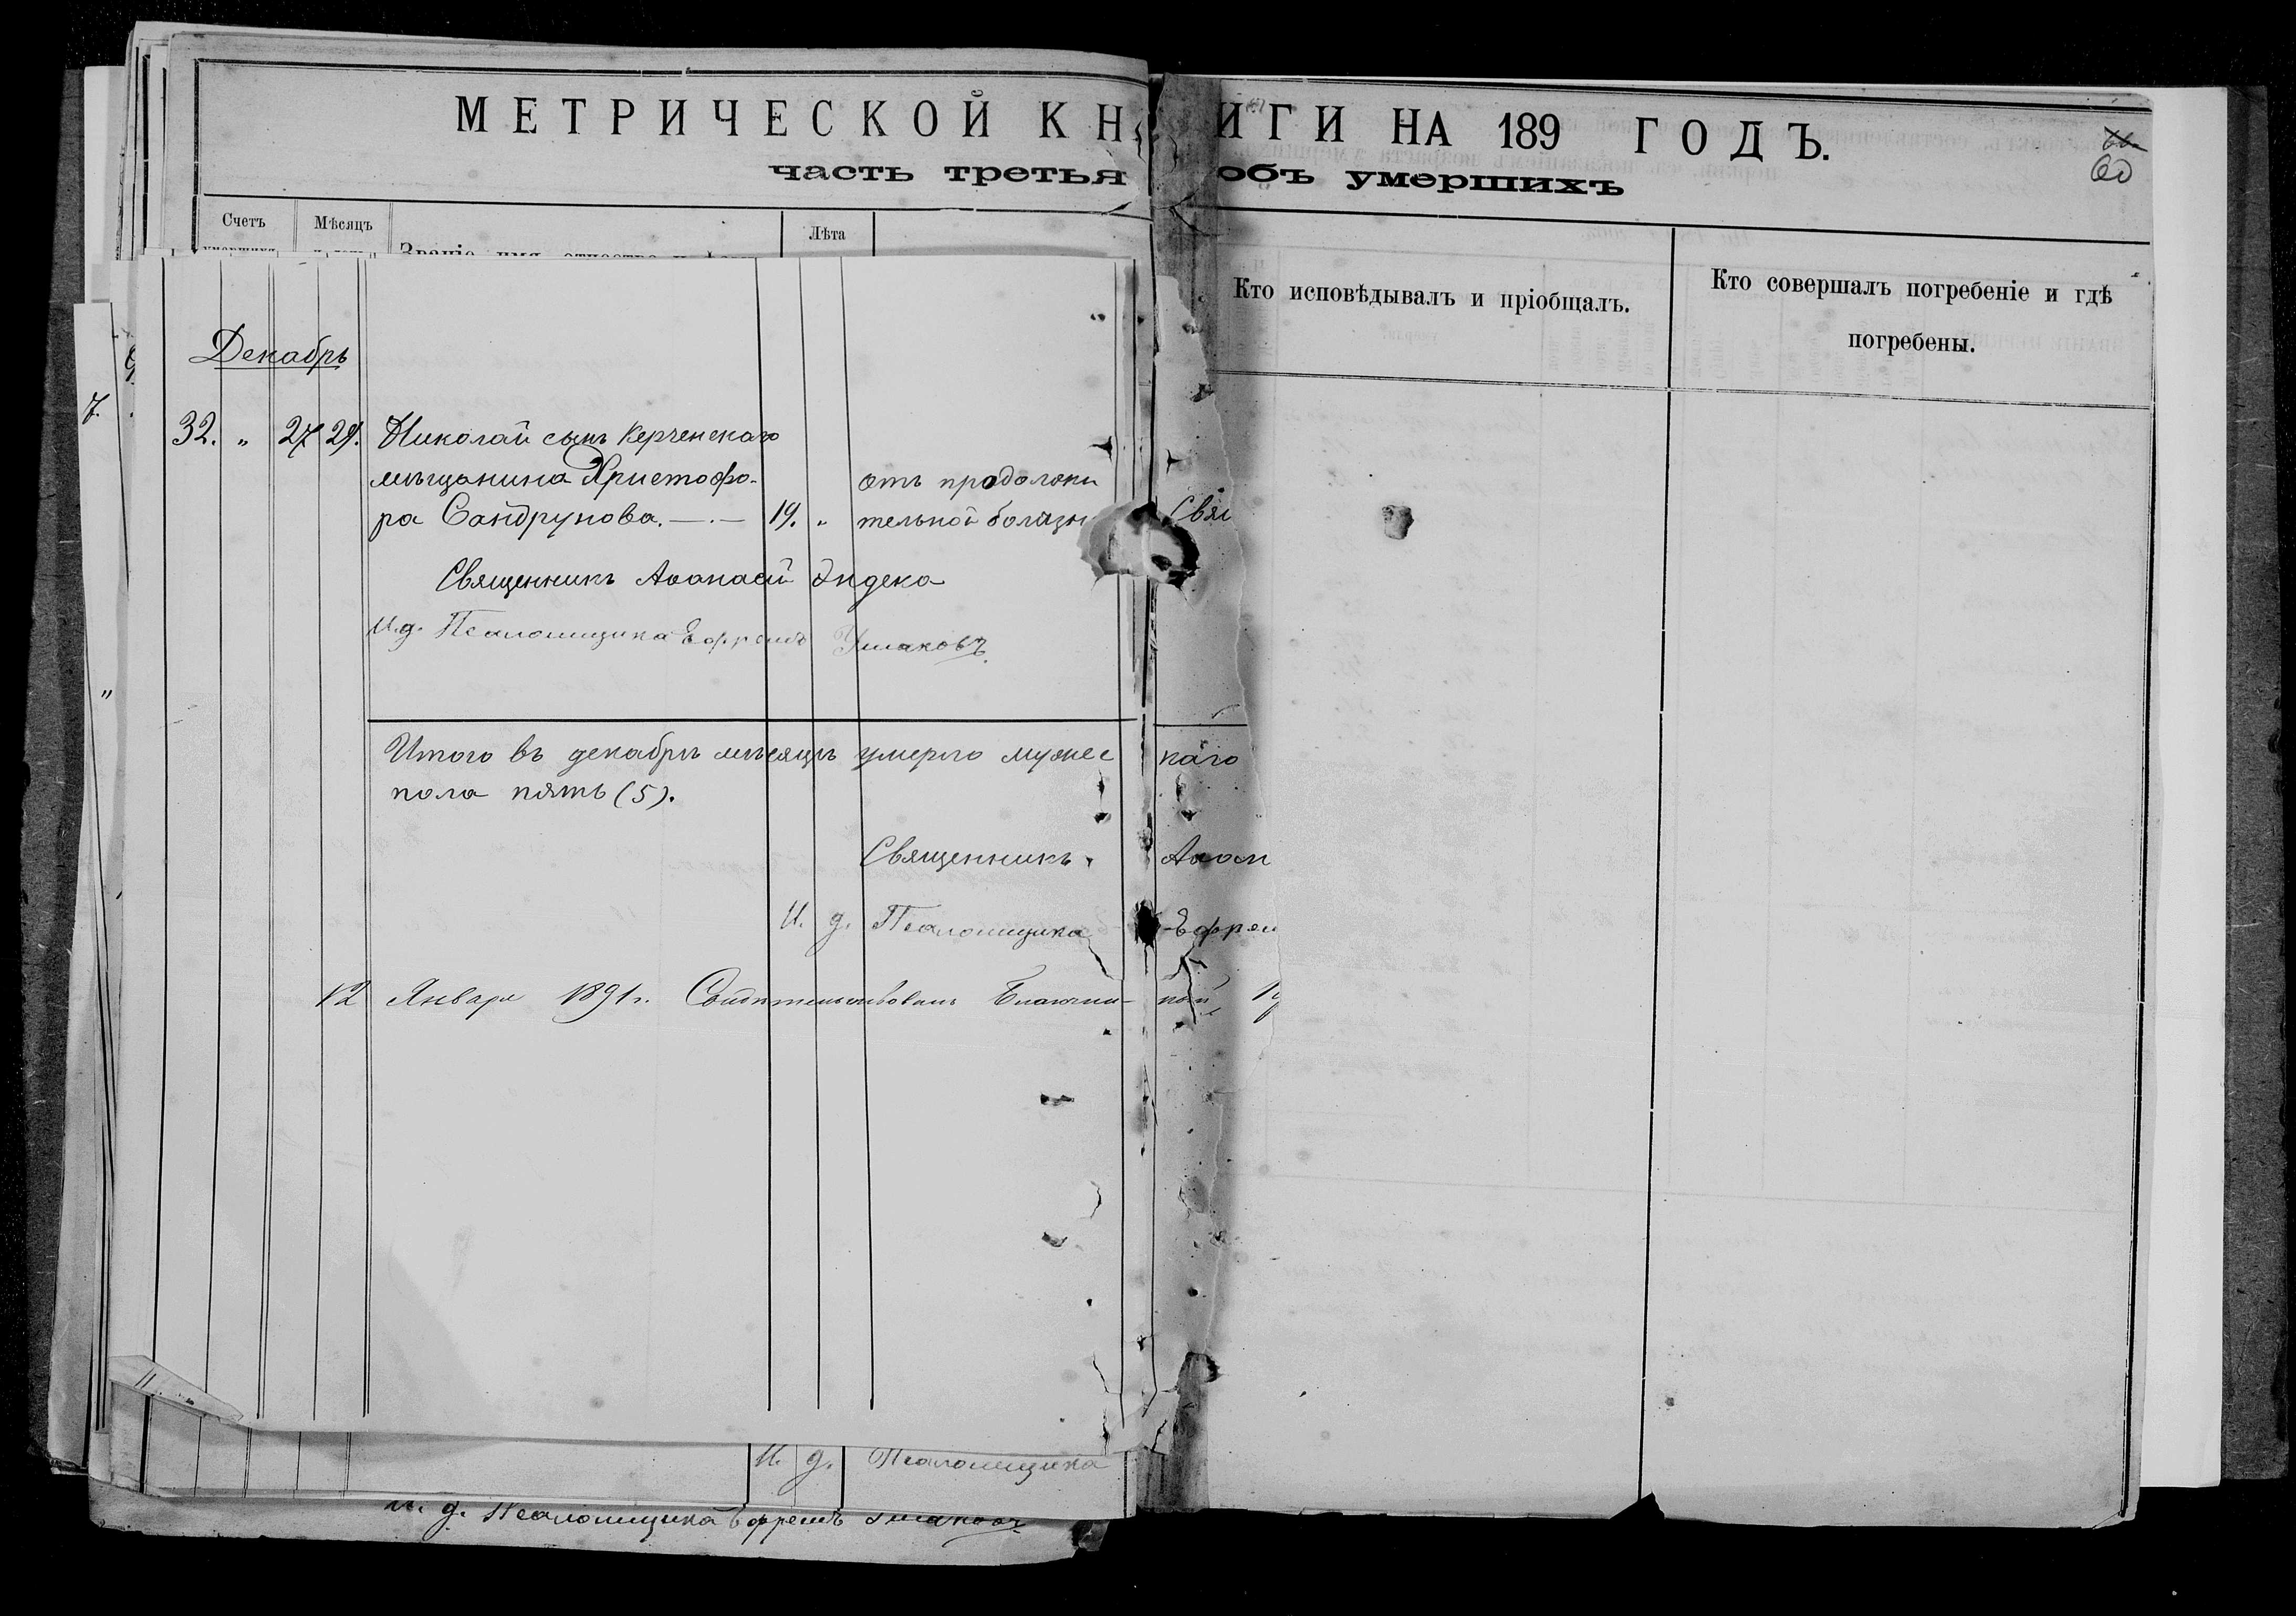 МЕТРИЧЕСКОЙ КНИГИ НА 189 ГОДЪ.
часть третья объ умершихъ
60
Счетъ
Мѣсяцъ
Лѣта
Званіе, имя, отчество и
Кто исповѣдывалъ и пріобщалъ.
Кто совершалъ погребеніе и гдѣ
погребены.
Декабрь
7.
32. „ 27 29. Николай сынъ Керченскаго
мѣщанина Христофо-
отъ продолжи
ра Сандрунова. —.— 19. „ тельной болѣзн Свя
Священникъ Аѳанасій
И. д. Псаломщика Ефремъ Ушаковъ.
Итого въ декабрѣ мѣсяцѣ умерло мужес каго
пола пять (5).
Священникъ Аѳан
И. д. Псаломщика Ефрем
12 Января 1891 г. Свидѣтельствовалъ Благочин-ный
И. д. Псаломщика
И. д. Псаломщика Ефремъ Ушаковъ